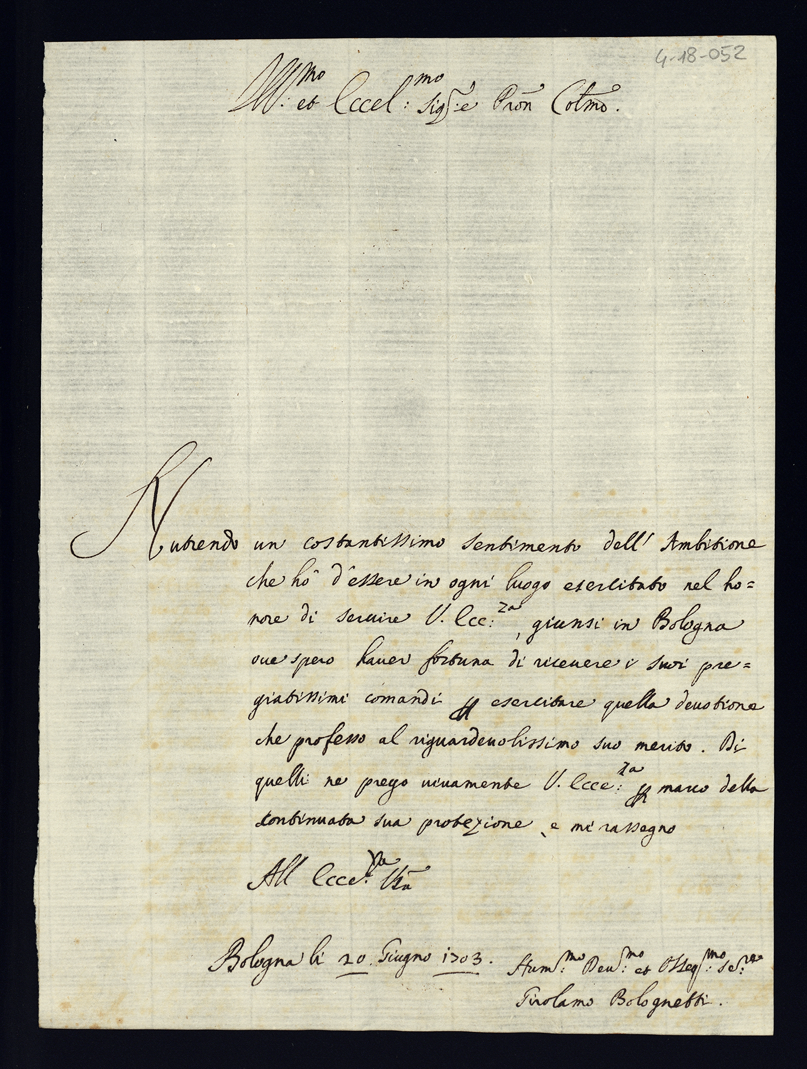 4-18-052
Ill:mo et Eccel:mo Sig:re Pron Colmo.
Nutrendo un costantissimo sentimento dell' Ambitione
che hò d'essere in ogni luogo esercitato nel ho=
nore di seruire V. Ecc:za, giunsi in Bologna
oue spero hauer fortuna di riceuere i suoi pre=
giatissimi comandi p esercitare quella deuotione
che professo al riguardeuolissimo suo merito. Di
quelli ne prego uiuamente V. Ecce:za p marco della
continuata sua protezione, e mi rassegno
All Ecce:za Vra
Bologna li 20 Giugno 1703.
Hum:mo Deu:mo et Osseq:mo Se:re
Girolamo Bolognetti.